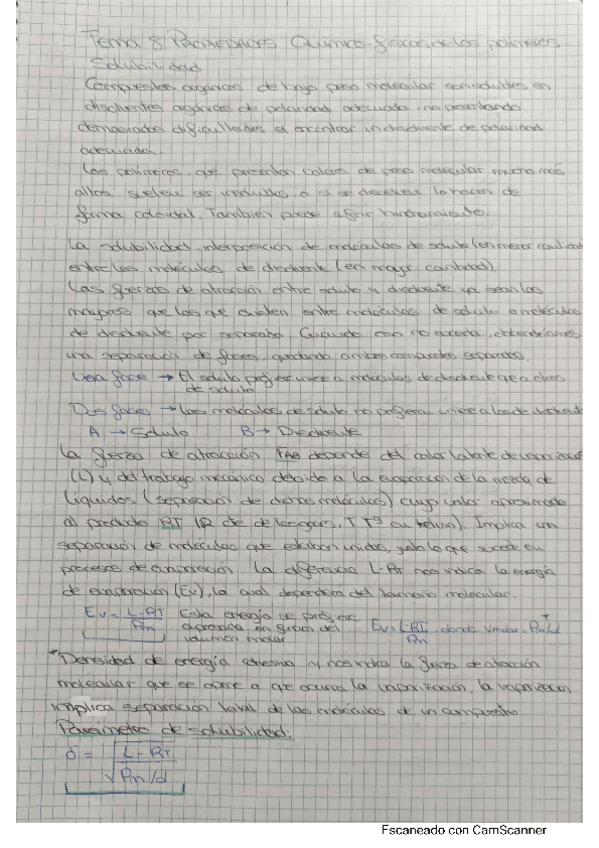 Tema 8. Propiedades Químico-físicas de los polímeros.
Solubilidad
Compuestos orgánicos de bajo peso molecular son solubles en
disolventes orgánicos de polaridad adecuada, no presentando
demasiadas dificultades al encontrar un disolvente de polaridad
adecuada.
Los polímeros, que presentan valores de peso molecular mucho más
altos, suelen ser insolubles, o si se disuelven lo hacen de
forma coloidal. También puede sufrir hinchamiento.
La solubilidad, interposición de moléculas de soluto (en menor cantidad)
entre las moléculas de disolvente (en mayor cantidad).
Las fuerzas de atracción entre soluto y disolvente ya sean las
mayores que las que existen entre moléculas de soluto o moléculas
de disolvente por separado. Cuando no suceda, obtendríamos
una separación de fases, quedando ambos compuestos separados.
Una fase → El soluto prefiere unirse a moléculas de disolvente que a otras
de soluto
Dos fases → Las moléculas de soluto no prefieren unirse a las de disolvente
A → Soluto B → Disolvente
La fuerza de atracción FAB depende del calor latente de vaporización
(L) y del trabajo mecánico debido a la evaporación de la mezcla de
líquidos (separación de dichas moléculas) cuyo valor aproximado
al producto RT (R de los gases, T Tª en kelvin). Implica una
separación de moléculas que estaban unidas, justo lo que sucede en
procesos de evaporación. La diferencia L-RT nos indica la energía
de evaporación (Ev), la cual dependerá del tamaño molecular.
Ev = L-RT/Pm Esta energía se prefiere expresarla en función del volumen molar Ev = L-RT/Pm, donde Vmolar = Pm/d
*Densidad de energía cohesiva y nos indica la fuerza de atracción
molecular que se opone a que ocurra la vaporización, la vaporización
implica separación total de las moléculas de un compuesto
Parámetro de solubilidad:
δ = √ L-RT / Pm/d
Escaneado con CamScanner